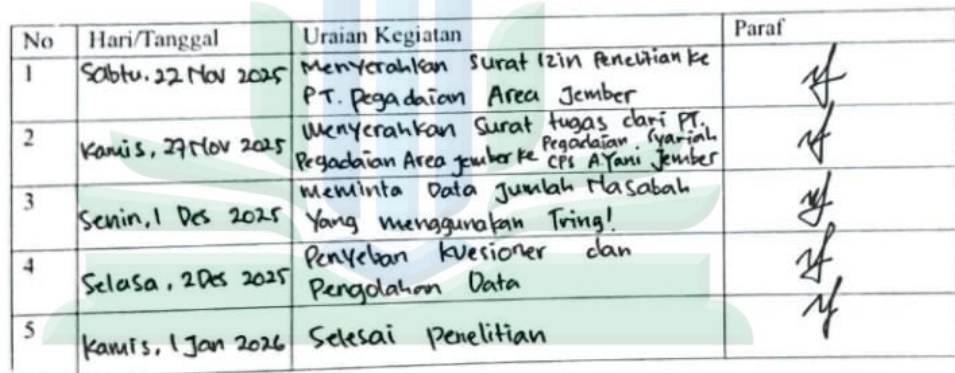 No Hari/Tanggal Uraian Kegiatan Paraf
1 Sabtu, 22 Nov 2025 Menyerahkan Surat Izin Penelitian ke
PT. Pegadaian Area Jember
2 Kamis, 27 Nov 2025 Menyerahkan Surat tugas dari PT.
Pegadaian Area Jember ke Pegadaian Syariah
CPS A Yani Jember
3 Senin, 1 Des 2025 Meminta Data Jumlah Nasabah
Yang menggunakan Tring!
4 Selasa, 2 Des 2025 Penyeban kuesioner dan
Pengolahan Data
5 Kamis, 1 Jan 2026 Selesai Penelitian